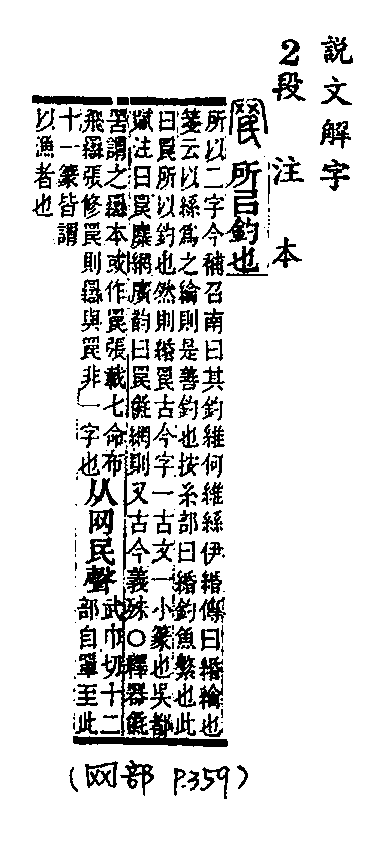 說文解字
2段注本
罠所㠯釣也
所以二字今補召南曰其釣維何維絲伊緡傳曰緡綸也
箋云以絲爲之綸則是善釣也按糸部曰緡釣魚繁也此
曰罠所以釣也然則緡罠古今字一古文一小篆也吳都
賦注曰罠麋網廣韵曰罠彘網則又古今義殊○釋器彘
罟謂之羉本或作罠張載七命布
飛羉張修罠則羉與罠非一字也
从网民聲
武巾切十二
部自罩至此
十一篆皆謂
以漁者也
(网部 P.359)